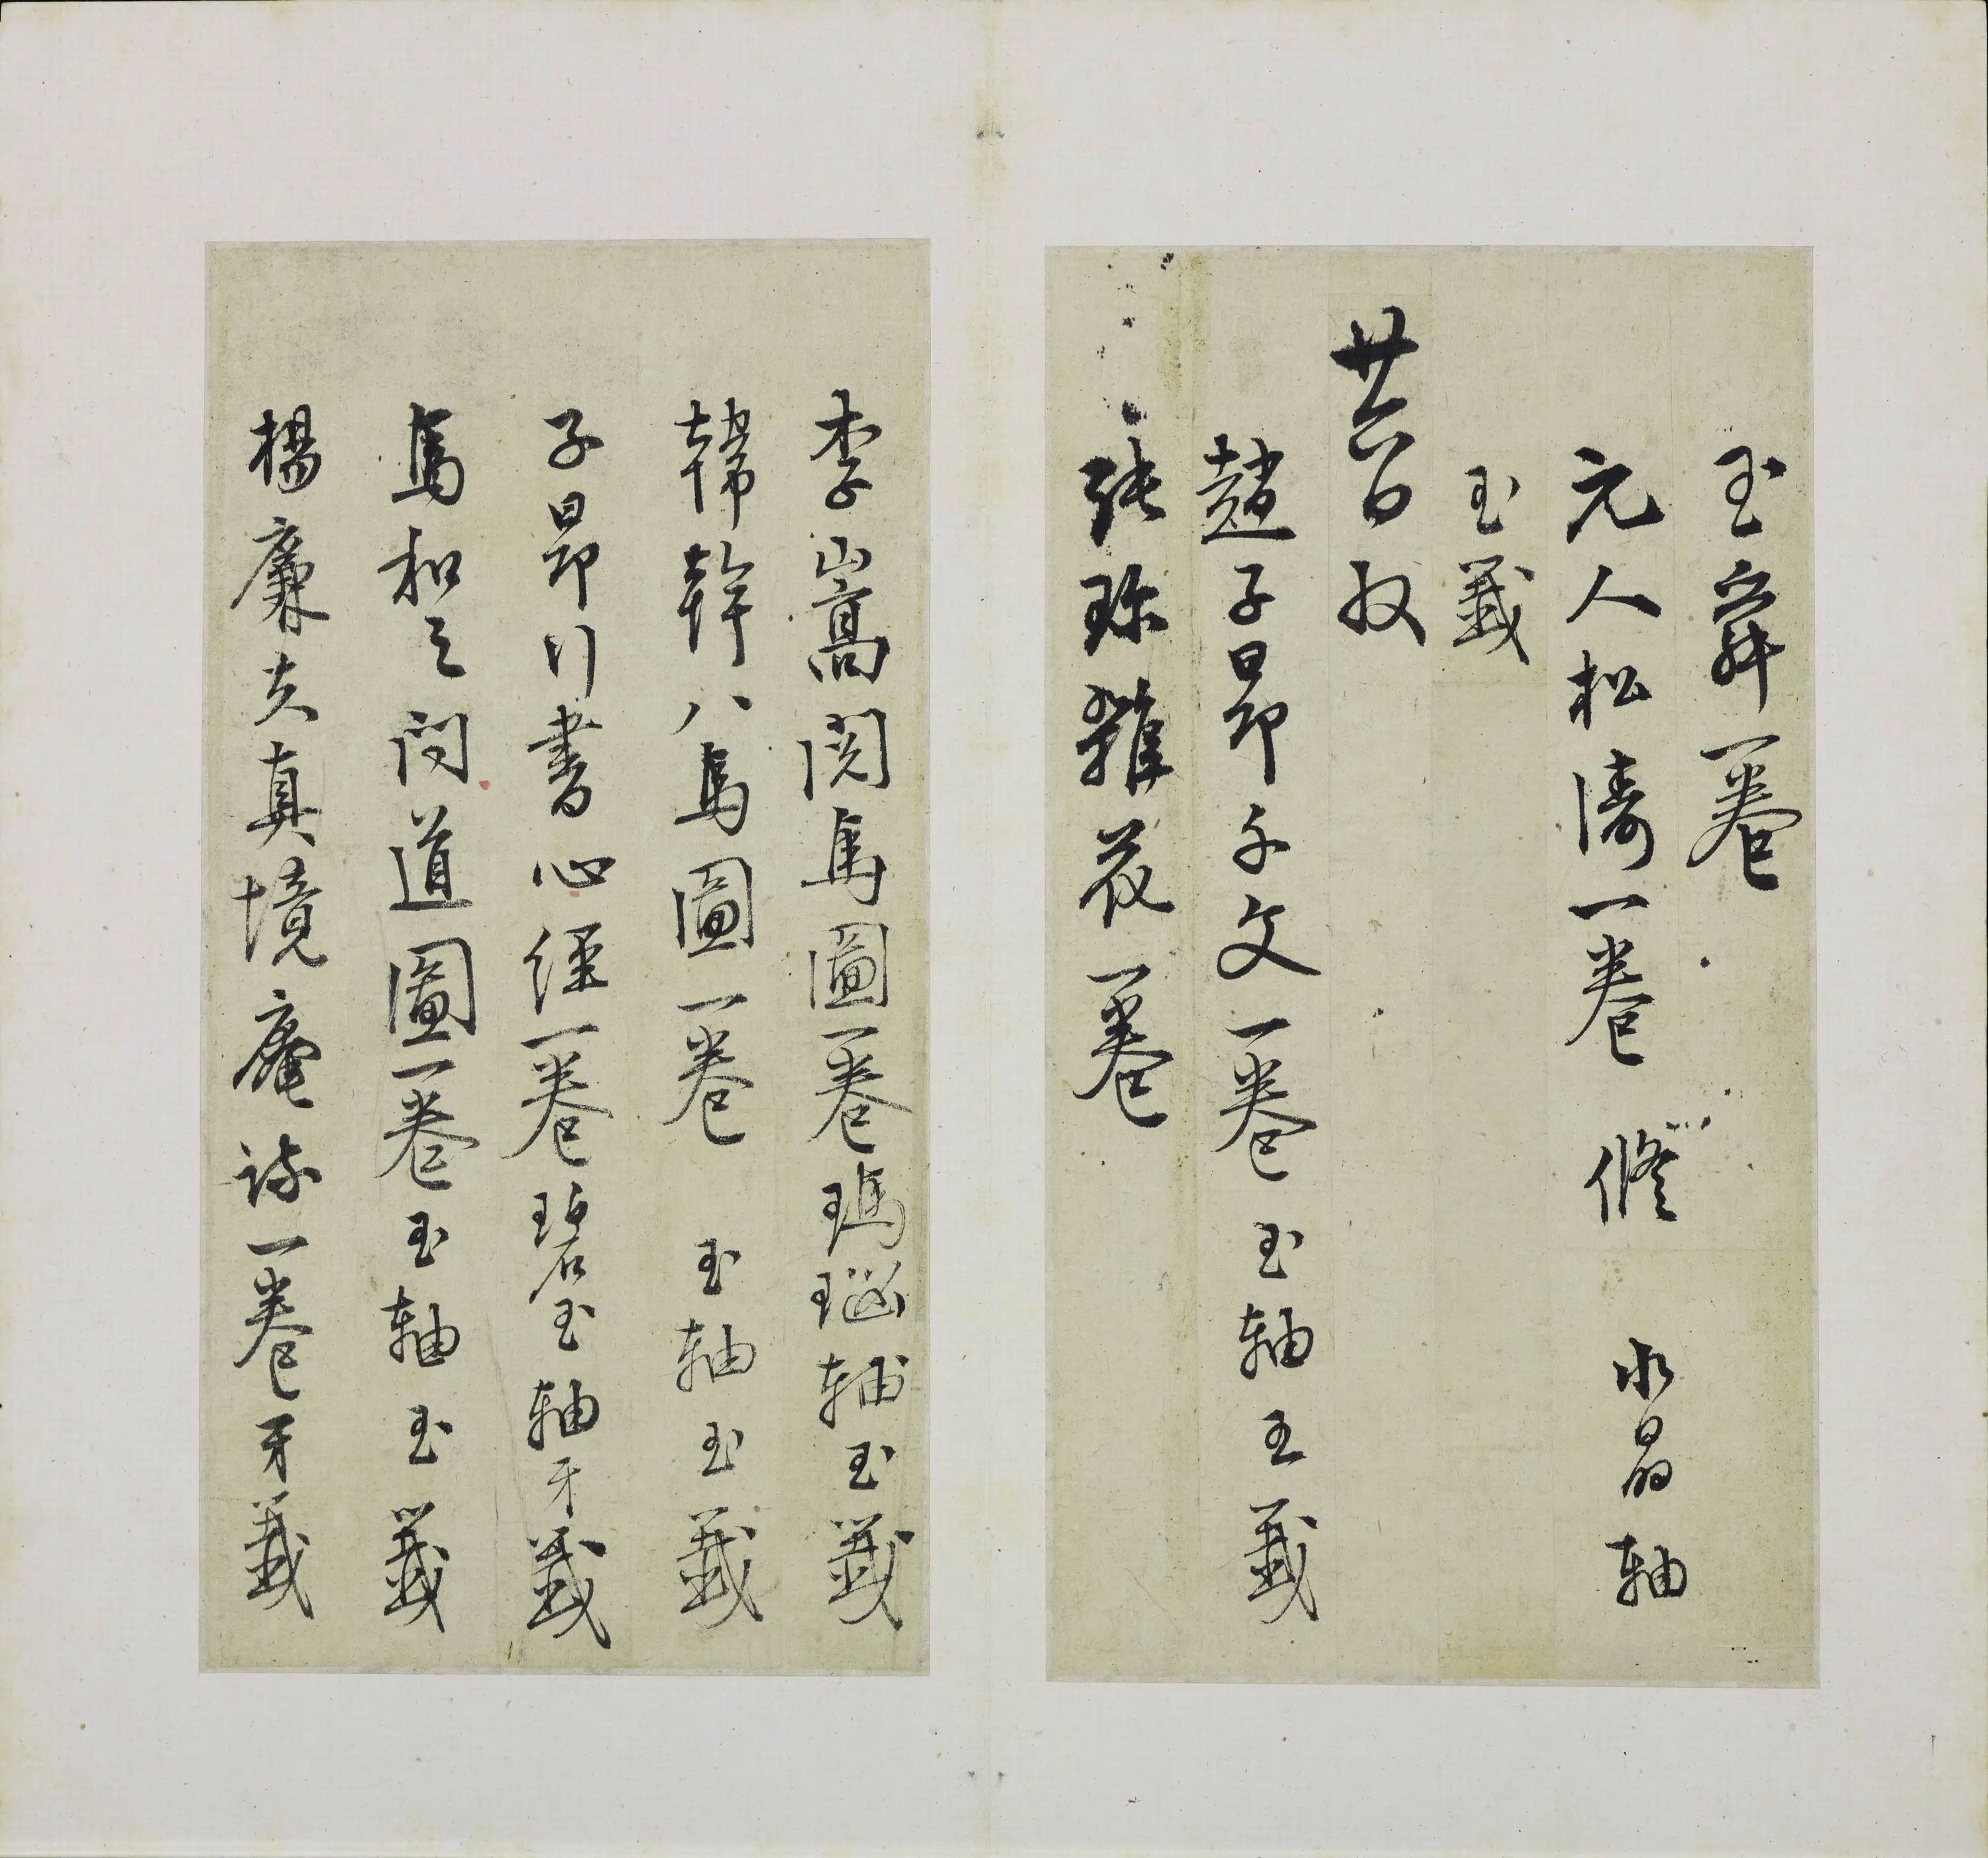 玉舜一卷
元人松濤一卷 修 水晶軸
玉籤
廿六日收
趙子昂千文一卷玉軸玉籤
張珎雜花一卷
李嵩閱馬圖一卷瑪瑙軸玉籤
韓幹八馬圖一卷玉軸玉籤
子昂行書心經一卷碧玉軸牙籤
馬和之問道圖一卷玉軸玉籤
楊廉夫真境庵一卷牙籤